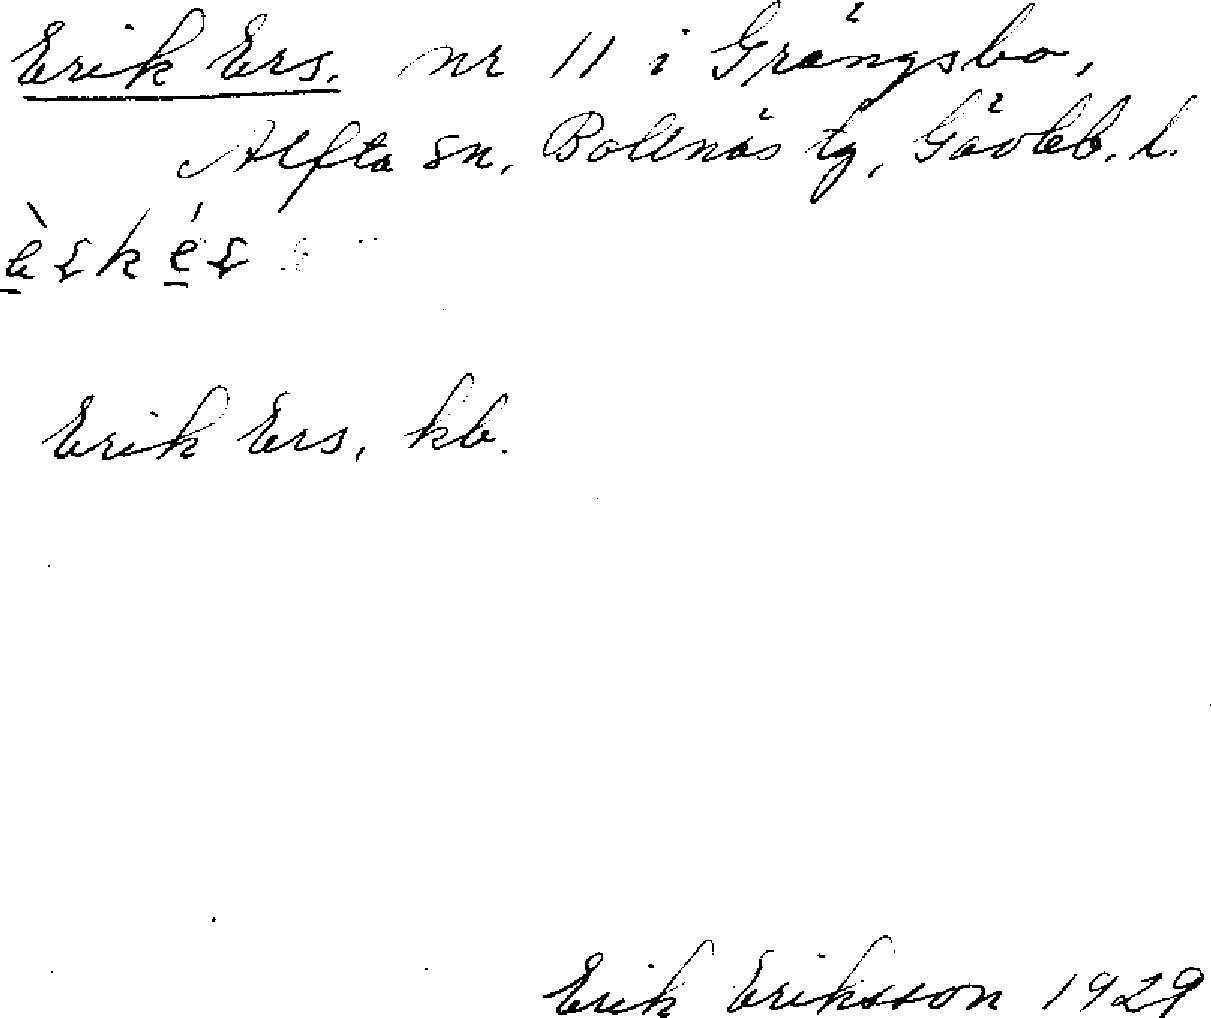 Erik Ers. nr 11 i Grängsbo,
Alfta sn, Bollnäs tg, Gävleb. l.
Erik Ers, kb.
Erik Eriksson 1929